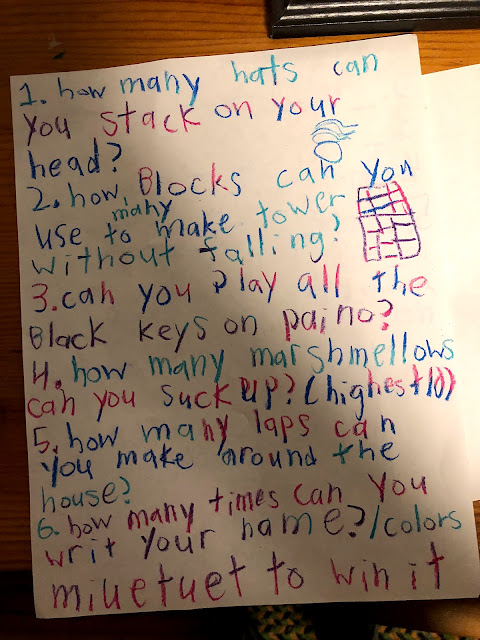 1. how many hats can
you stack on your
head?
2. how many Blocks can you
use to make tower
without falling?
3. can you play all the
Black keys on paino?
4. how many marshmellows
can you suck up? (highest 10)
5. how many laps can
you make around the
house?
6. how many times can you
writ your name?/colors
miuetuet to win it